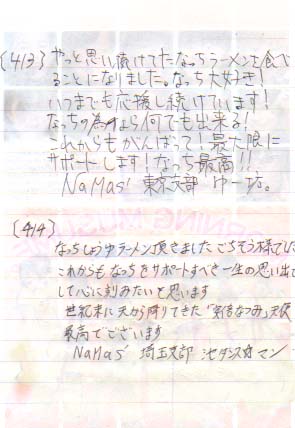 (413) やっと思い続けてたなっちラーメンを食べ
ることになりました。なっち大好き!
いつまでも応援し続けています!
なっちの為なら何でも出来る!
これからもがんばって!最大限に
サポートします!なっち最高!!
NaMas' 東京支部 ゆー坊。
(414)
なっちしょうゆラーメン頂きました ごちそう様でした
これからも なっちをサポートすべき一生の思い出と
して心に刻みたいと思います
世紀末に天から降りてきた "安倍なつみ" 天使
最高でございます
NaMas' 埼玉支部 マン